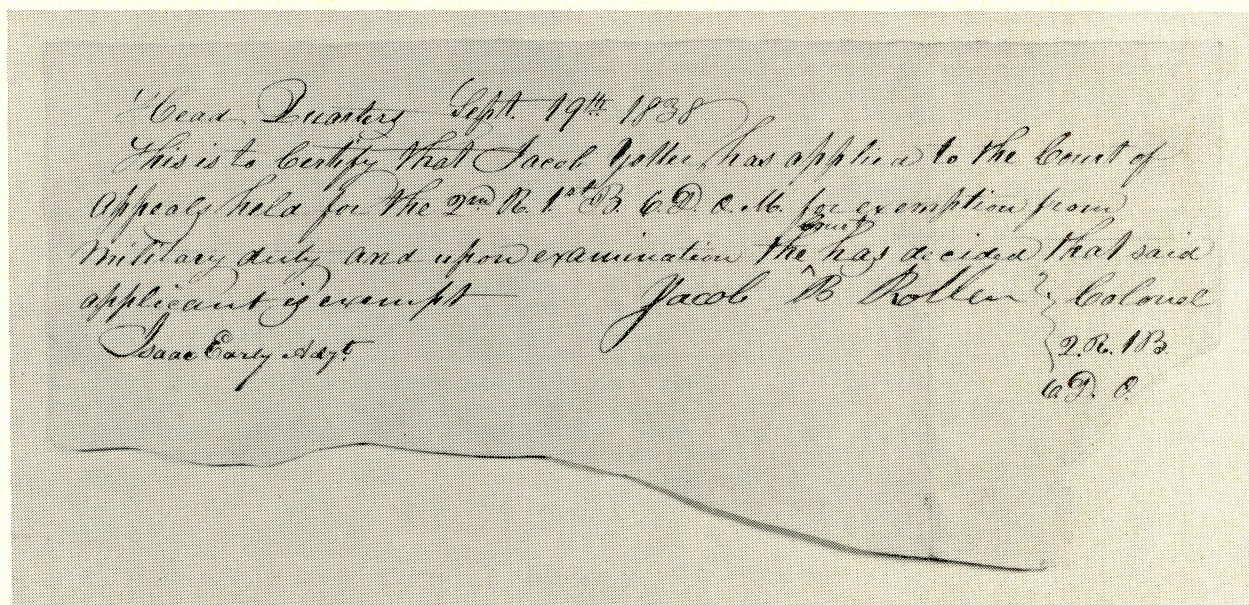 Head Quarters Sept. 19th 1838
This is to Certify that Jacob Yotter has applied to the Court of
Appeals held for the 2nd R. 1st B. 6. D. O. M. for exemption from
Military duty and upon examination the court has decided that said
applicant is exempt Jacob B Roller Colonel
Isaac Early Adjt. 2. R. 1 B.
6 D. O.